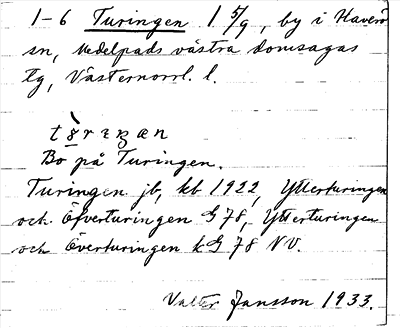 1-6 Turingen 1 5/9, by i Haverö
sn, Medelpads västra domsagas
tg, Västernorrl. l.
Bo på Turingen.
Turingen jb, kb 1922, Ytterturingen
och Öfverturingen G 78, Ytterturingen
och Överturingen k G 78 NV.
Valter Jansson 1933.